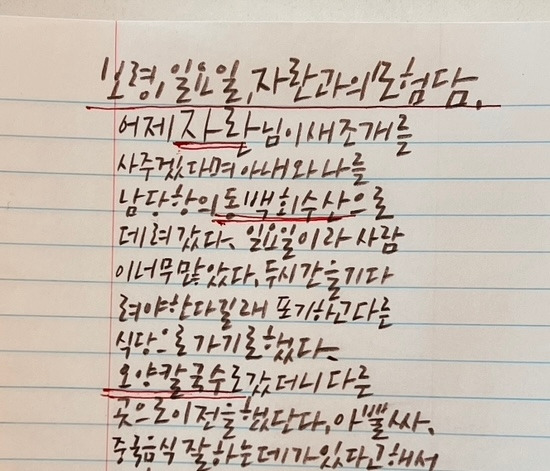 보령, 일요일, 자란과의 모험담.
어제 자란님이 새조개를
사주겠다며 아내와 나를
남당항의 동백회수산으로
데려갔다. 일요일이라 사람
이 너무 많았다, 두시간을 기다
려야 한다길래 포기하고 다른
식당으로 가기로 했다.
오양칼국수로 갔더니 다른
곳으로 이전을 했단다, 아뿔싸.
중국음식 잘하는데가 있다고 해서